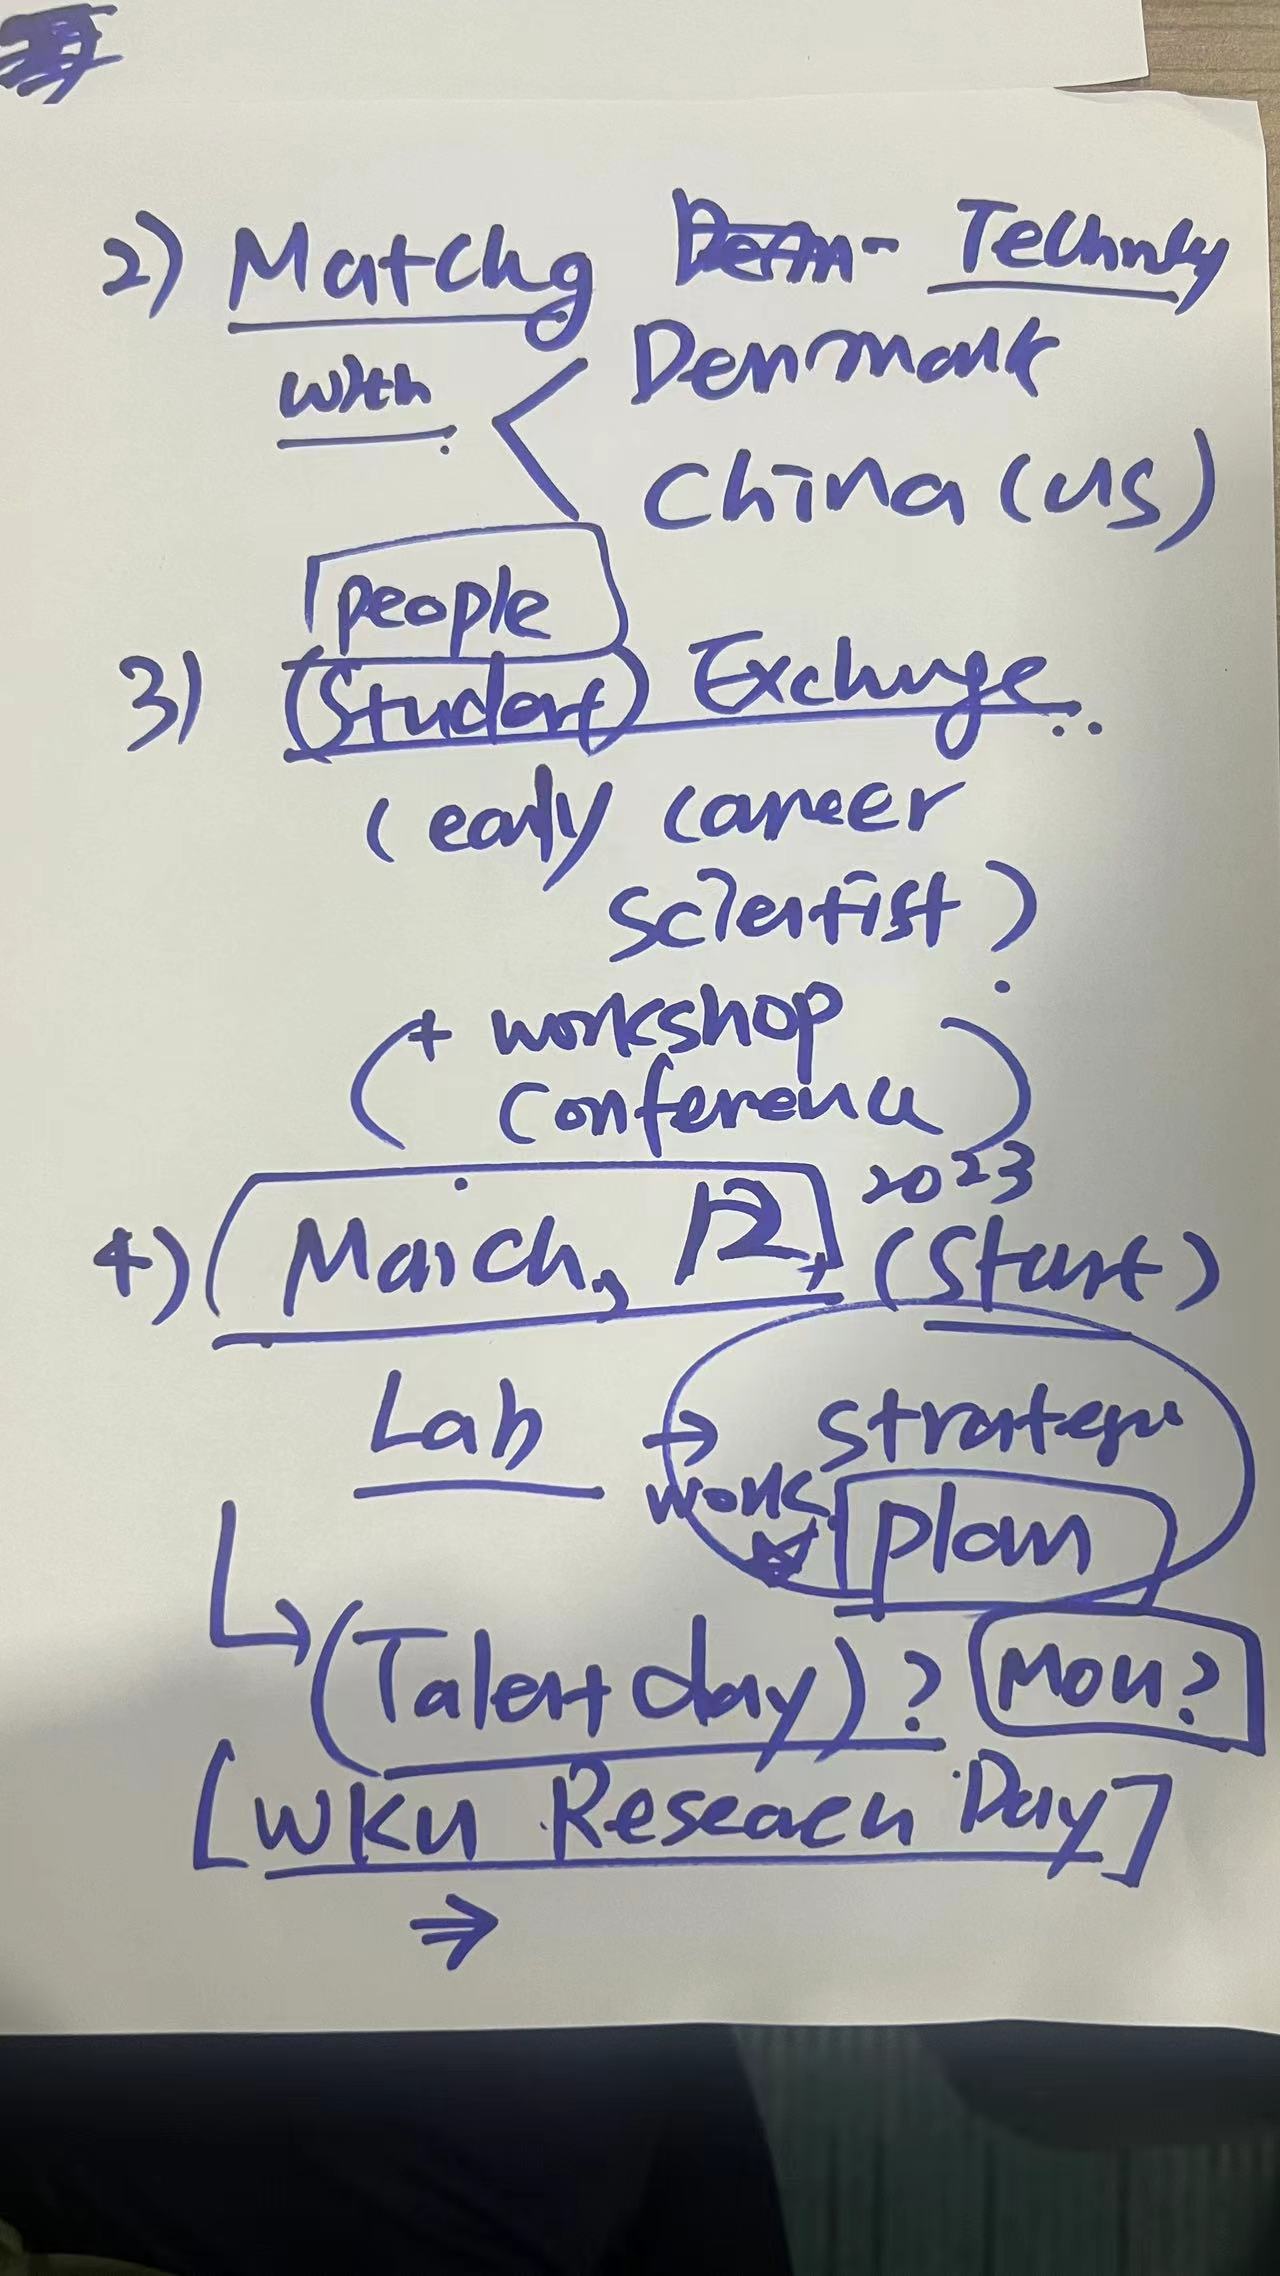 2) Matchg - Technly
with < Denmark
China (US)
people
3) (Student) Exchange
(early career
scientist)
(+ workshop
conference)
2023
4) (March, 12, (Start)
Lab → strategic
work plan
↳ (Talent day)? Mou?
[WKU Reseach Day]
⇒